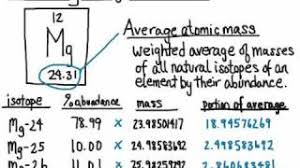 12
Mg
24.31
Average atomic mass
weighted average of masses
of all natural isotopes of an
element by their abundance.
isotope % abundance mass portion of average
Mg-24 78.99 x 23.9850417 18.94576269
Mg-25 10.00 x 24.98583692 2.498583692
Mg-26 11.01 x